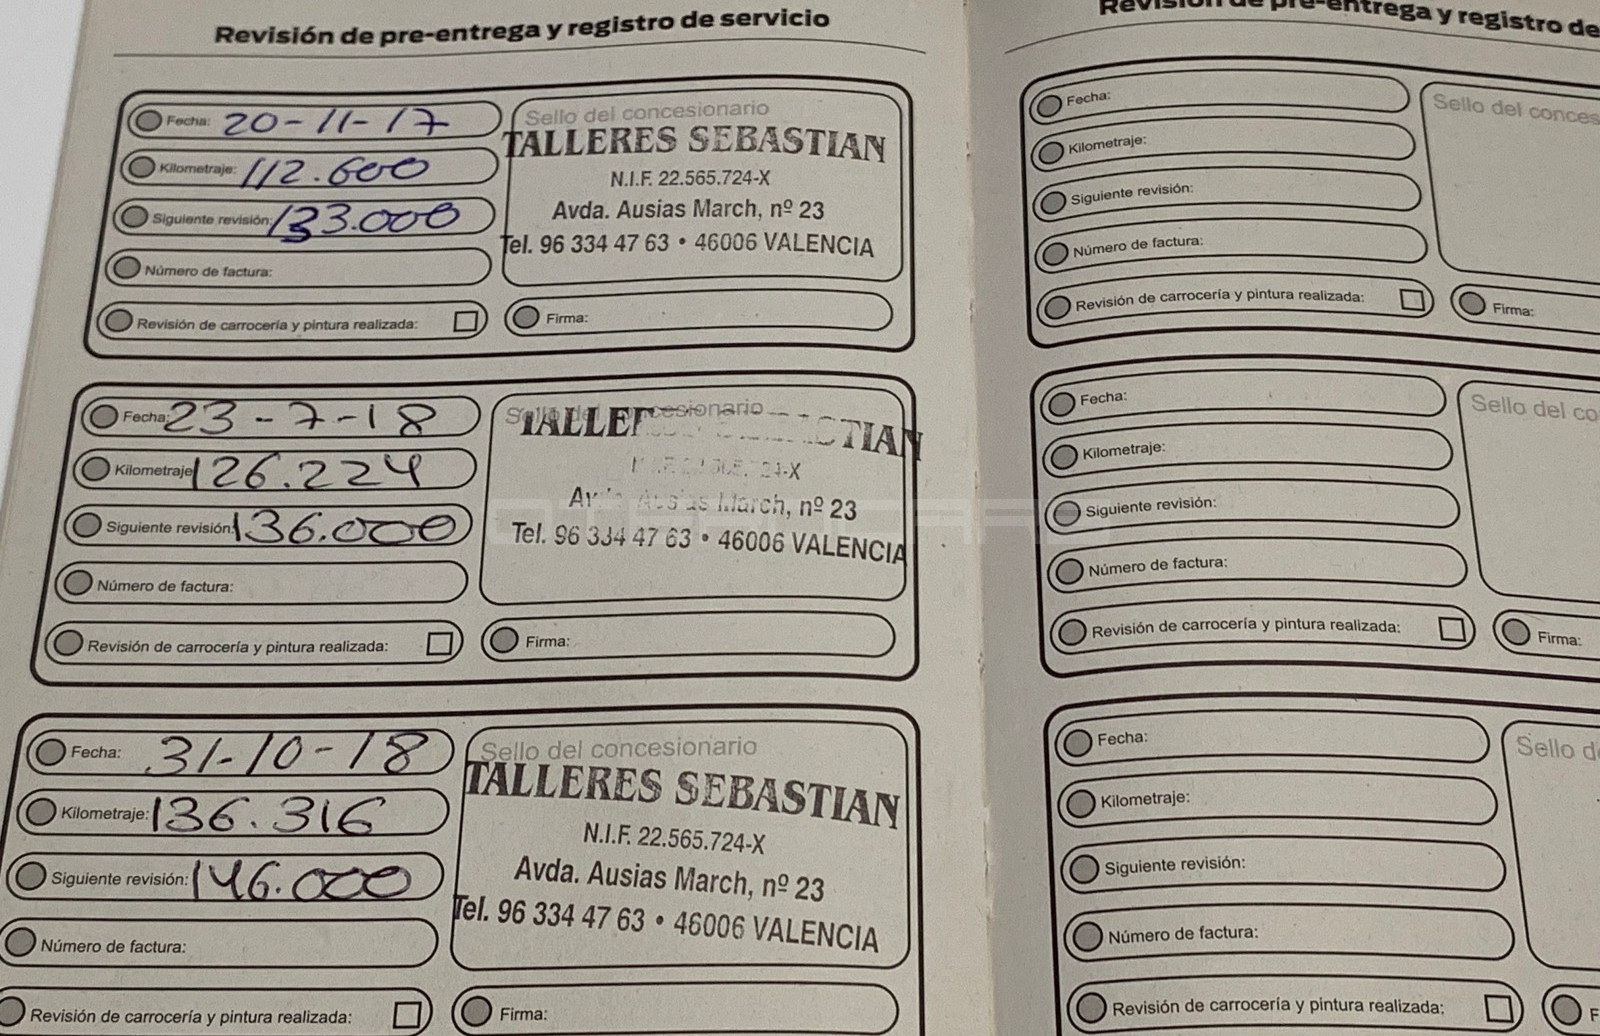 Revisión de pre-entrega y registro de servicio
Fecha: 20-11-17
Kilometraje: 112.600
Siguiente revisión: 133.000
Número de factura:
Revisión de carrocería y pintura realizada:
Sello del concesionario
TALLERES SEBASTIAN
N.I.F. 22.565.724-X
Avda. Ausias March, nº 23
Tel. 96 334 47 63 • 46006 VALENCIA
Firma:
Fecha: 23-7-18
Kilometraje 126.224
Siguiente revisión: 136.000
Número de factura:
Revisión de carrocería y pintura realizada:
Sello del concesionario
Ausias March, nº 23
Tel. 96 334 47 63 • 46006 VALENCIA
Firma:
Fecha: 31-10-18
Kilometraje: 136.316
Siguiente revisión: 146.000
Número de factura:
Revisión de carrocería y pintura realizada:
Sello del concesionario
TALLERES SEBASTIAN
N.I.F. 22.565.724-X
Avda. Ausias March, nº 23
Tel. 96 334 47 63 • 46006 VALENCIA
Firma:
Revisión de pre-entrega y registro de
Fecha:
Kilometraje:
Siguiente revisión:
Número de factura:
Revisión de carrocería y pintura realizada:
Sello del conces
Firma:
Fecha:
Kilometraje:
Siguiente revisión:
Número de factura:
Revisión de carrocería y pintura realizada:
Sello del co
Firma:
Fecha:
Kilometraje:
Siguiente revisión:
Número de factura:
Revisión de carrocería y pintura realizada:
Sello d
F